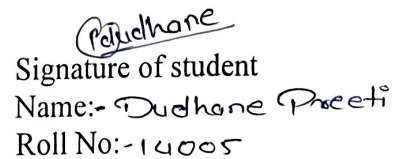 PdDudhane
Signature of student
Name:- Dudhane Preeti
Roll No:-14005